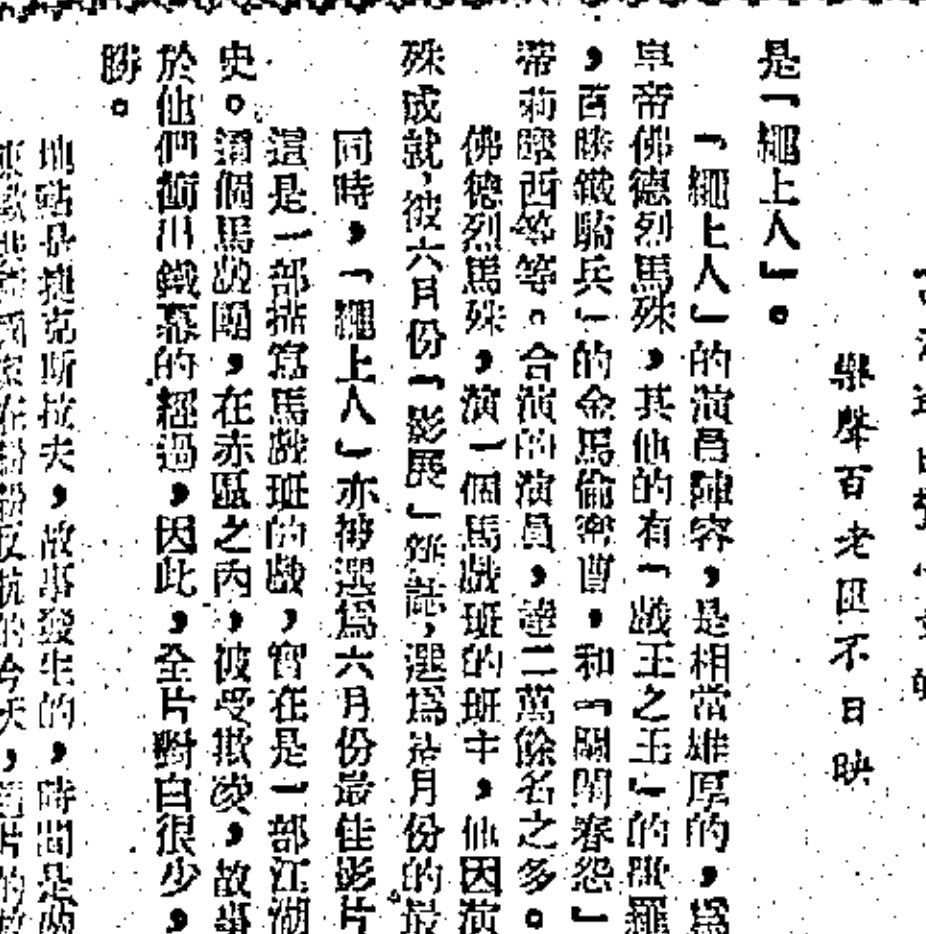 樂聲百老匯不日映
是「繩上人」。
「繩上人」的演員陣容,是相當雄厚的,爲
卑帝佛德烈馬殊,其他的有「戲王之王」的 羅
,百勝鐵騎兵」的金馬倫 曹,和「關閨春怨」
蒂莉 西等等。合演的演員,達二萬餘名之多。
佛德烈馬殊,演一個馬戲班的班主,他因演
殊成就,被六月份「影展」雜誌,選爲 月份的最
同時,「繩上人」亦被選爲六月份最佳影片
這是一部描寫馬戲班的戲,實在是一部江湖
史。這個馬戲團,在赤區之內,被受欺凌,故事
於他們衝出鐵幕的經過,因此,全片對白很少,
勝。
地點是捷克斯拉夫,故事發生的,時間是
的今天,